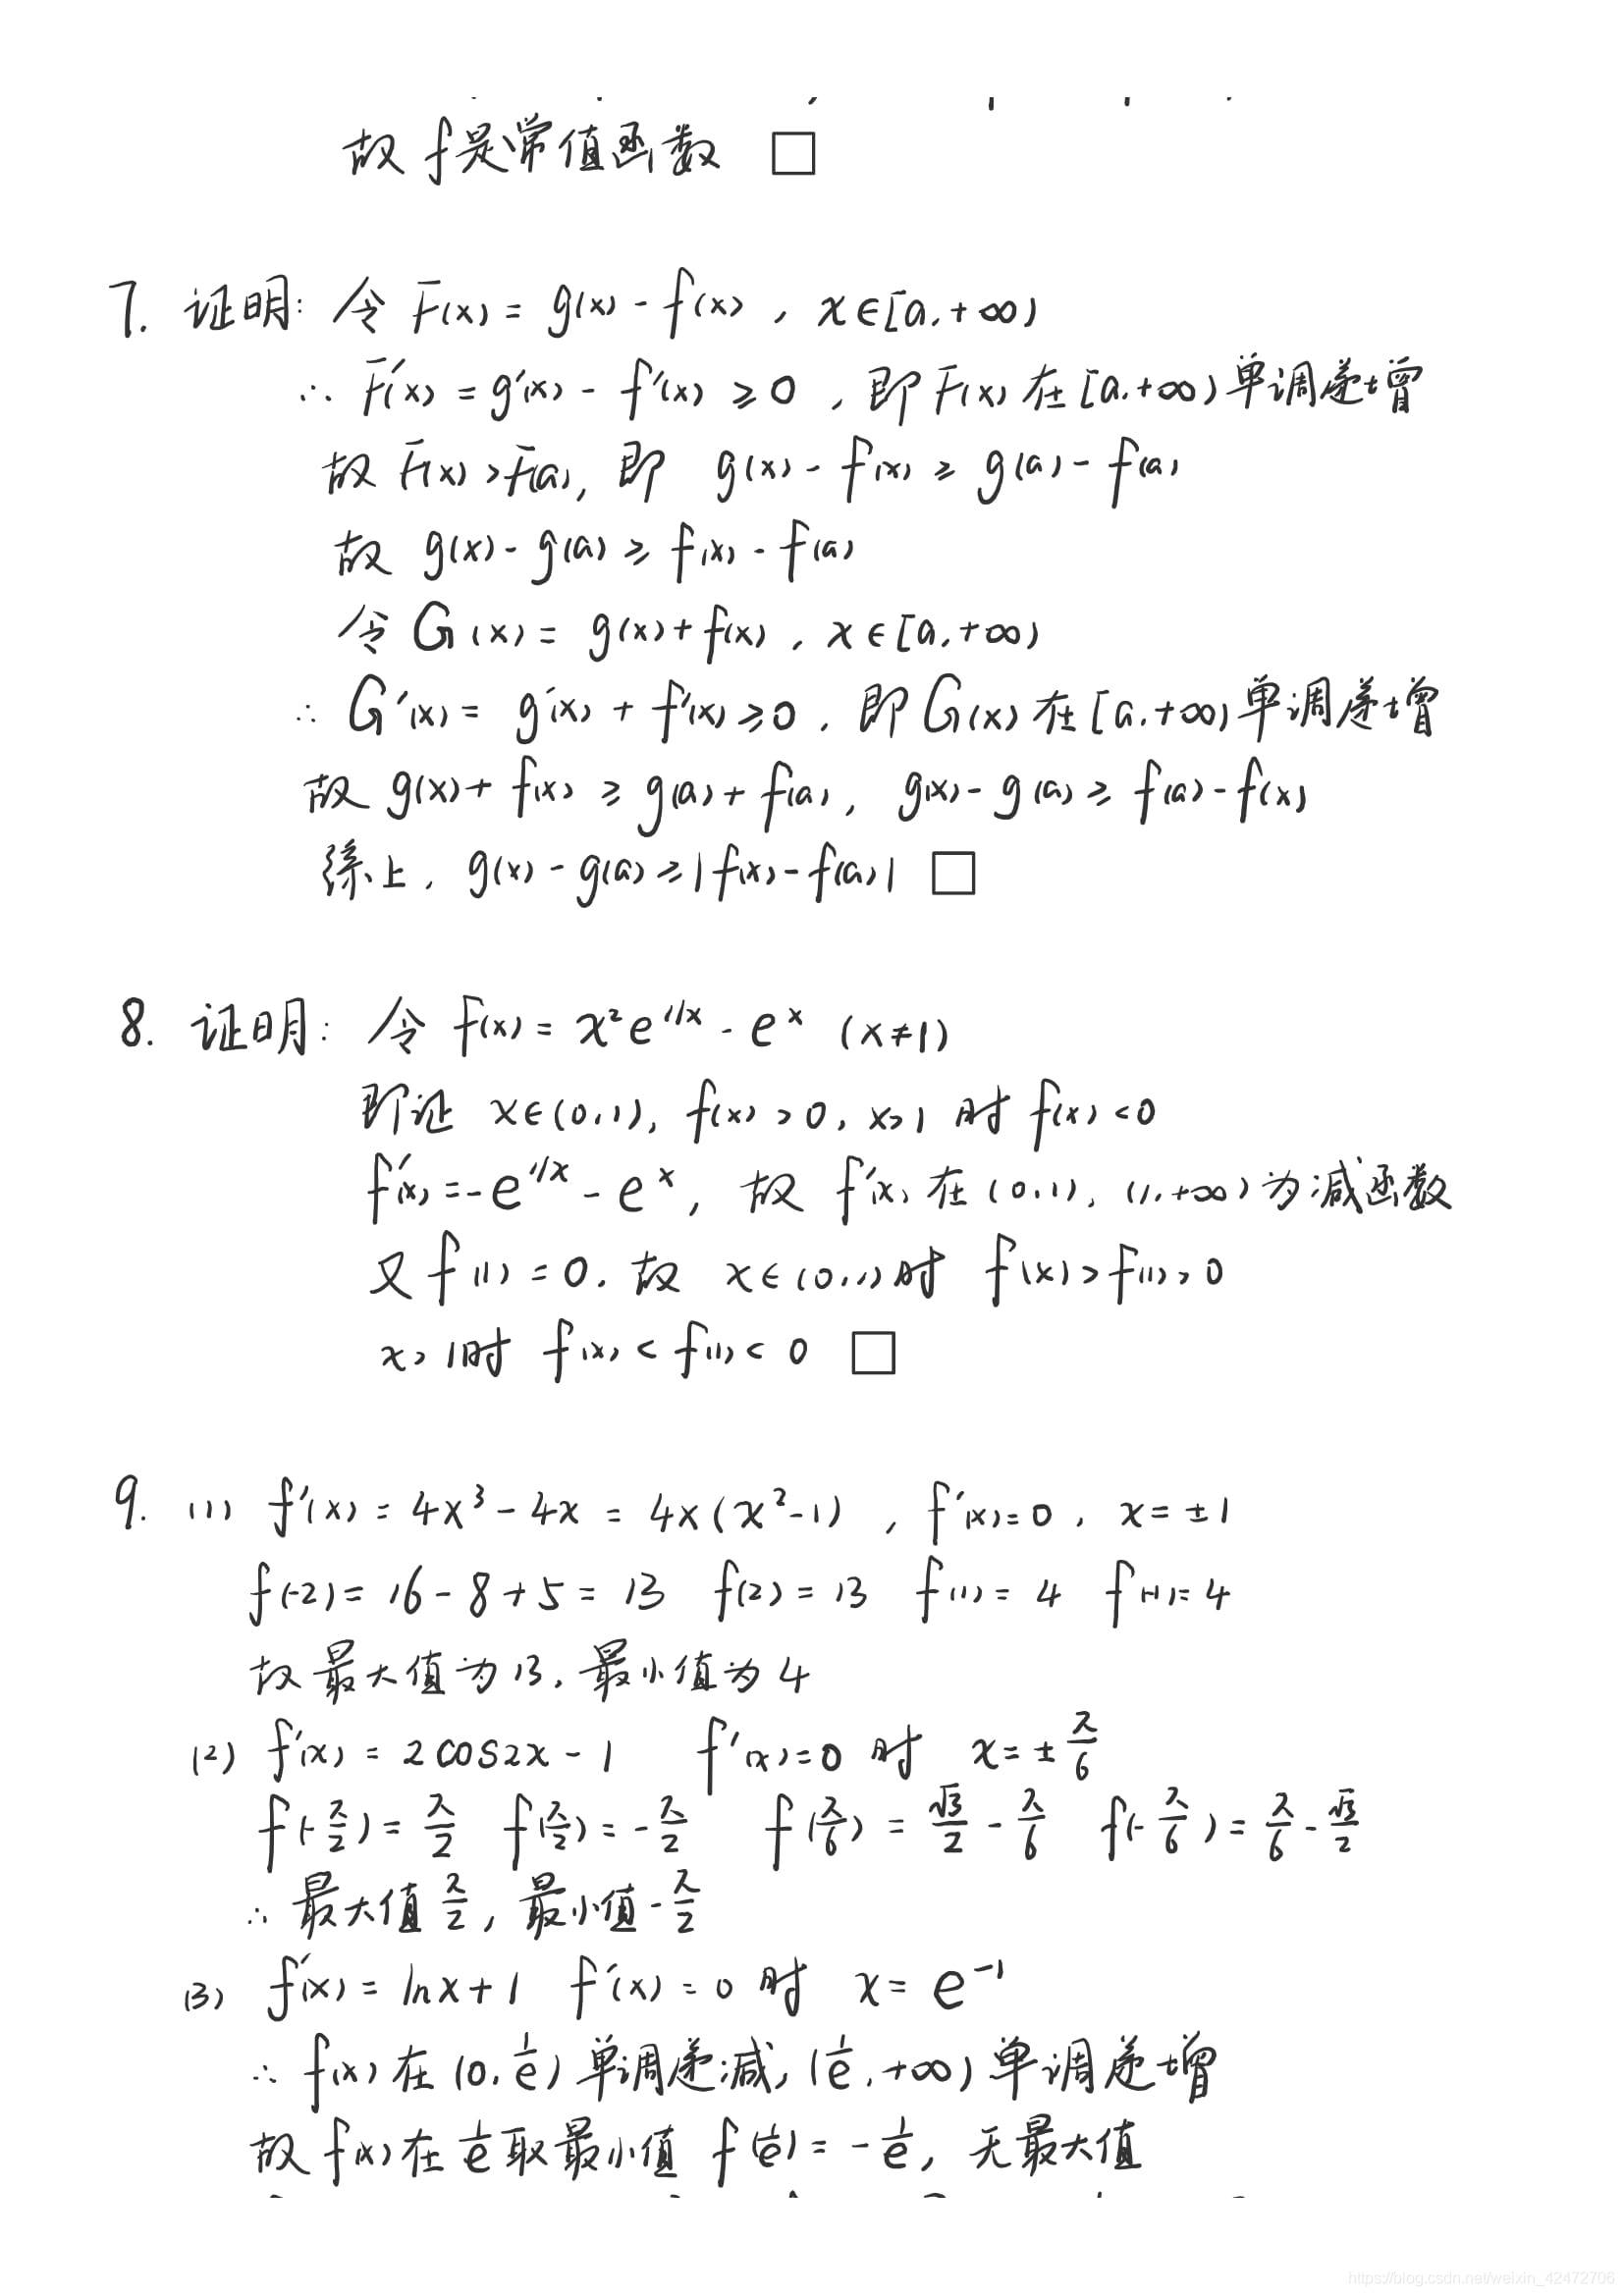 故 f是常值函数 □
7. 证明: 令 F(x) = g(x) - f(x) , x∈[a,+∞)
∴ F'(x) = g'(x) - f'(x) ≥ 0 , 即 F(x) 在 [a,+∞) 单调递增
故 F(x) > F(a), 即 g(x) - f(x) ≥ g(a) - f(a)
故 g(x) - g(a) ≥ f(x) - f(a)
令 G(x) = g(x) + f(x) , x∈[a,+∞)
∴ G'(x) = g'(x) + f'(x) ≥ 0 , 即 G(x) 在 [a,+∞) 单调递增
故 g(x) + f(x) ≥ g(a) + f(a), g(x) - g(a) ≥ f(a) - f(x)
综上, g(x) - g(a) ≥ |f(x) - f(a)| □
8. 证明: 令 f(x) = x²e^{1/x} - e^x (x≠1)
即证 x∈(0,1), f(x) > 0, x>1 时 f(x) < 0
f'(x) = -e^{1/x} - e^x, 故 f'(x) 在 (0,1), (1,+∞) 为减函数
又 f(1) = 0. 故 x∈(0,1)时 f(x) > f(1) > 0
x>1时 f(x) < f(1) < 0 □
9. (1) f'(x) = 4x³ - 4x = 4x(x²-1) , f'(x)=0, x=±1
f(-2) = 16 - 8 + 5 = 13 f(2) = 13 f(1) = 4 f(-1) = 4
故最大值为13, 最小值为4
(2) f'(x) = 2cos2x - 1 f'(x)=0 时 x=±π/6
f(-π/2) = π/2 f(π/2) = -π/2 f(π/6) = √3/2 - π/6 f(-π/6) = π/6 - √3/2
∴ 最大值 π/2, 最小值 -π/2
(3) f'(x) = lnx+1 f'(x) = 0 时 x = e^{-1}
∴ f(x) 在 (0, 1/e) 单调递减, (1/e, +∞) 单调递增
故 f(x) 在 1/e 取最小值 f(1/e) = -1/e, 无最大值
https://blog.csdn.net/weixin_42472706